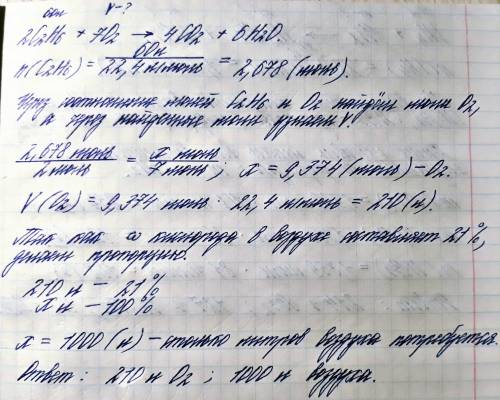 60л V-?
2C2H6 + 7O2 → 4CO2 + 6H2O.
n(C2H6) = 60л / 22,4 л/моль = 2,678 (моль).
Через соотношение молей C2H6 и O2 найдём моли O2,
а через найденные моли узнаем V.
2,678 моль / 2 моль = x моль / 7 моль; x = 9,374 (моль) - O2.
V(O2) = 9,374 моль · 22,4 л/моль = 210 (л).
Так как ω кислорода в воздухе составляет 21%,
делаем пропорцию.
210 л - 21%
x л - 100%
x = 1000 (л) - столько литров воздуха потребуется.
Ответ: 210 л O2; 1000 л воздуха.